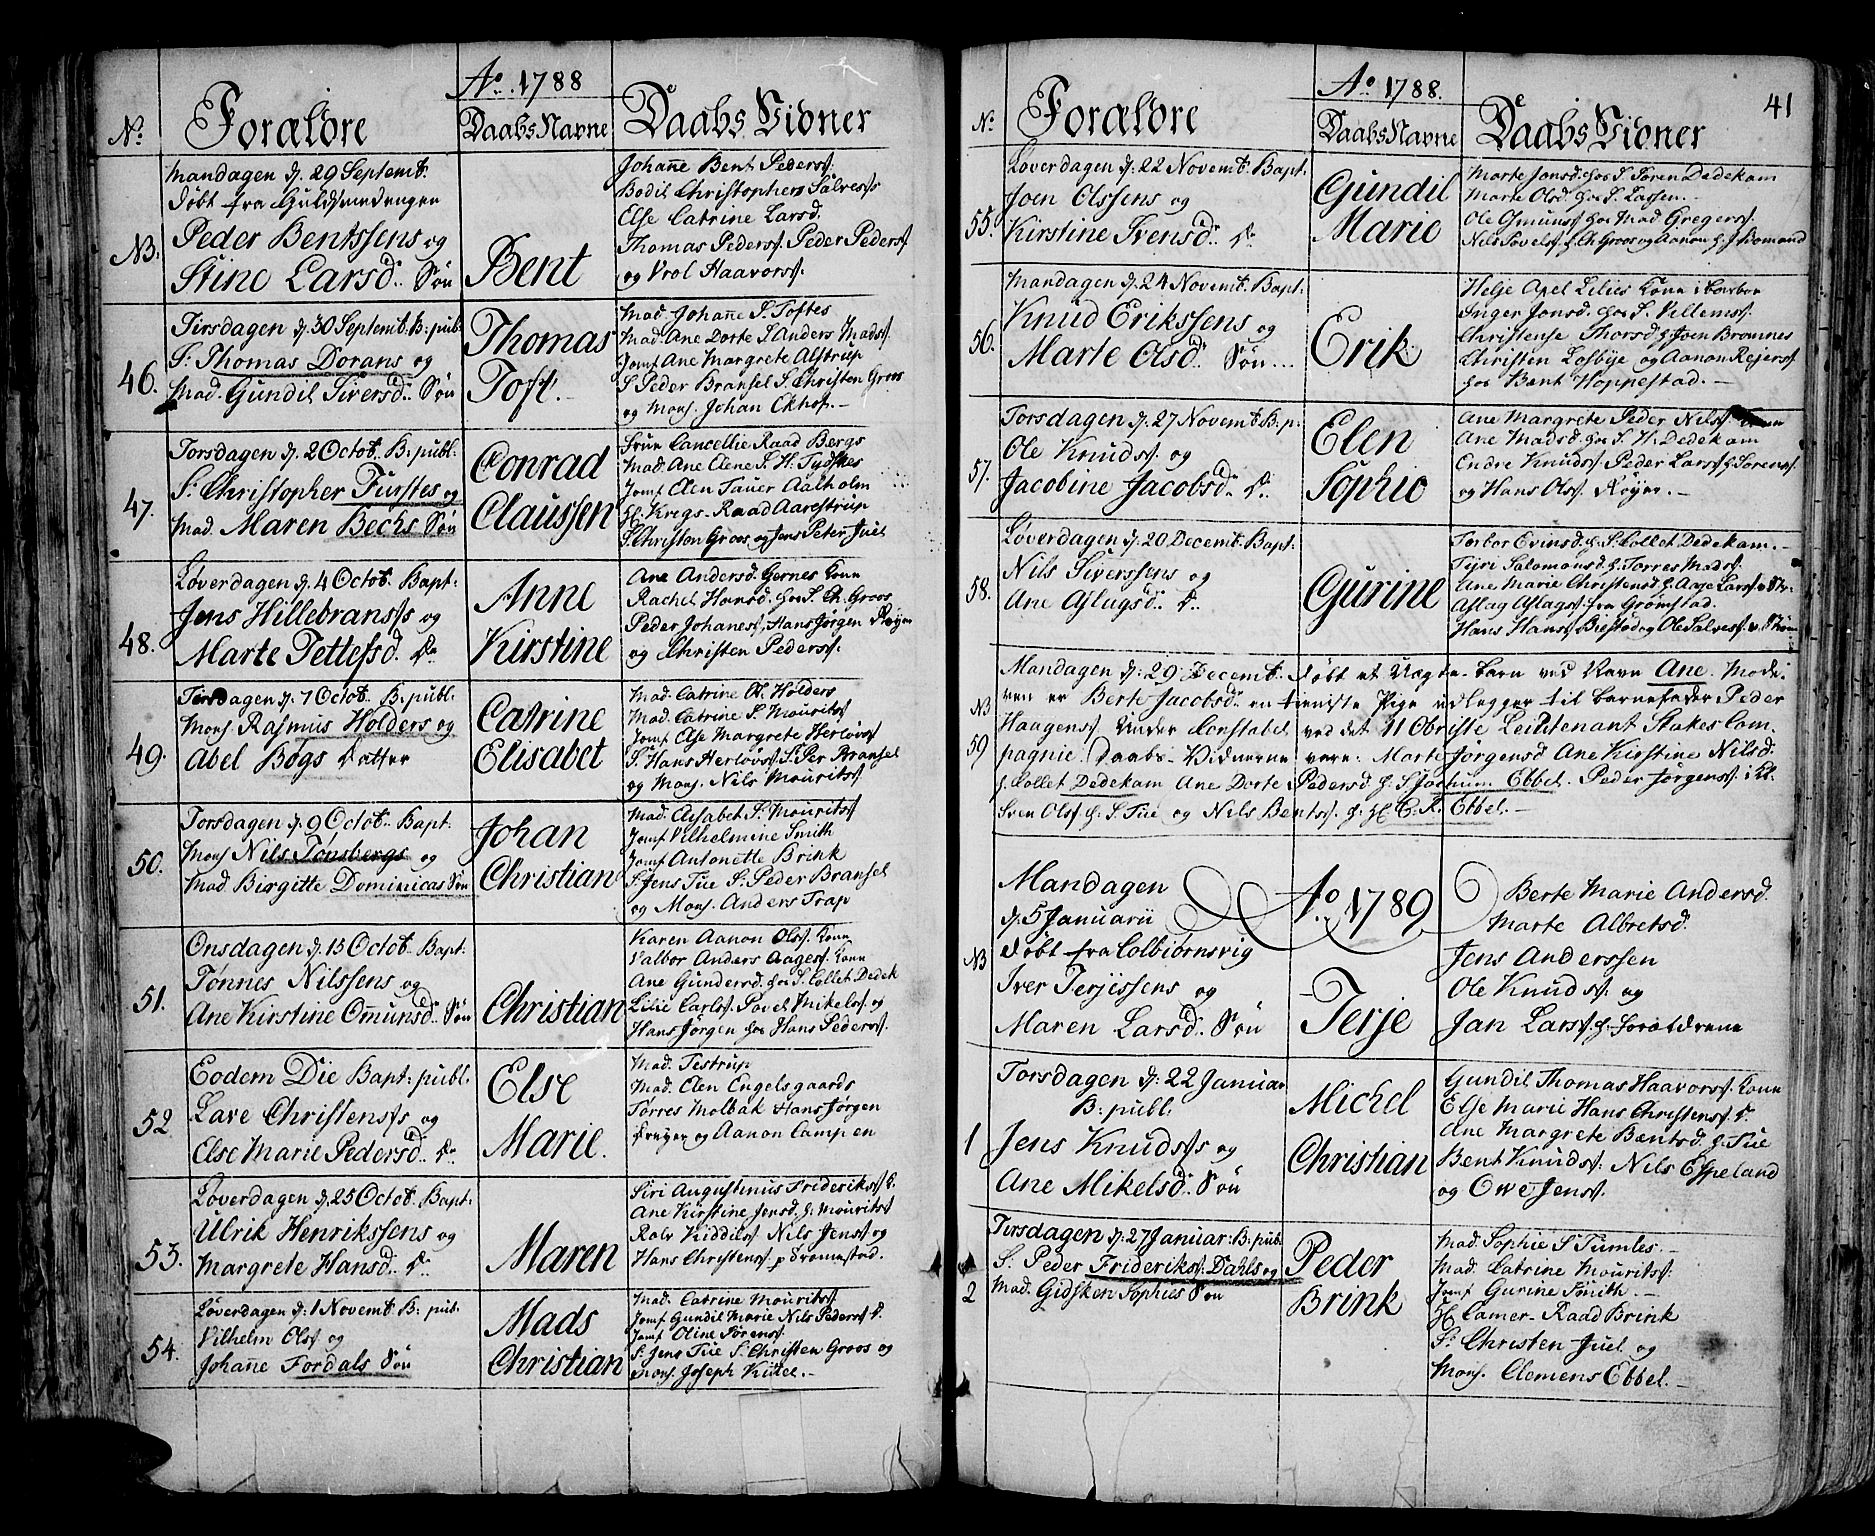 Ao. 1788
No. Forældre DaabsNavne Daabs Vidner
Mandagen d. 29 Septembr.
døbt fra Guldsmedengen
NB. Peder Bentssens og
Stine Larsd. Søn
Bent
Johañe Bent Pederss.
Bodil Christophers Salvess
Else Catrine Larsd.
Thomas Pederss. Peder Pederss
og Vrol Haavorss.
46. Tirsdagen d. 30 Septembr. B: publ
Sr. Thomas Dorans og
Mad. Gundil Siversd. Søn
Thomas
Toft.
Mad. Johañe S. Toftes
Mad. Ane Dorte S. Anders Madss.
Jomf. Ane Margrete Alstrup
S. Peder Bransel S. Christen Groos
og Mons. Johan Ekhof.
47. Torsdagen d. 2 Octobr. B: publ:
Sr. Christopher Furstes og
Mad. Maren Bechs Søn
Conrad
Claussen
Frue Cancellie Raad Bergs
Mad. Ane Elene S. H. Tydskes
Jomf. Elen Tauer Aalholm
Hr. Kregs-Raad Aarestrup
S. Christen Groos og Jens Peter Juel
48. Løverdagen d. 4 Octobr. Bapt:
Jens Hillebranss og
Marte Tettefsd. Dr.
Anne
Kirstine
Ane Andersd. Gernes Kone
Rachel Hansd. hos S. Ch. Groos
Peder Johaness. Hans Jørgen Røyer
og Christen Pederss.
49. Tirsdagen d. 7 Octobr. B: publ:
Mons. Rasmus Holders og
Abel Bøgs Datter
Catrine
Elisabet
Mad. Catrine Ol. Holders
Mad. Catrine S. Mouritss
Jomf. Else Margrete Herløvss
S. Hans Herløvss S. Per Bransel
og Mons. Nils Mouritss
50. Torsdagen d. 9 Octobr. Bapt:
Mons. Nils Tønsbergs og
Mad. Birgitte Dominicas Søn
Johan
Christian
Mad. Elisabet S. Mouritss
Jomf. Vilhelmine Smith
Jomf. Antonette Brink
S. Jens Tue S. Peder Bransel
og Mons. Anders Trap
51. Onsdagen d. 15 Octobr. Bapt:
Tønnes Nilssens og
Ane Kirstine Omunsd. Søn
Christian
Karen Aanon Olss. Kone
Valbor Anders Aagess. Kone
Ane Gundersd. hos S. Collet Dedek
Lilie Carlss. Povel Mikelss. og
Hans Jørgen hos Hans Pederss.
52. Eodem Die Bapt: publ.
Lave Christenss og
Else Marie Pedersd. Dr.
Else
Marie.
Mad. Testrup
Mad. Elen Engelsgaards
Torres Molbak Hans Jørgen
Drøyer og Aanon Campen
53. Løverdagen d. 25 Octobr. Bapt:
Ulrik Henrikssens og
Margrete Hansd. Dr.
Maren
Siri Augustinus Frideriks. K.
Ane Kirstine Jensd. h. Mouritss
Rolv Kiddilss Nils Jenss og
Hans Christenss. p Tromøstad.
54. Løverdagen d. 1 Novembr. B: pub.
Vilhelm Olss og
Johañe Fordals Søn
Mads
Christian
Mad. Catrine Mouritss.
Jomf. Gundil Marie Nils Pederss D.
Jomf. Oline Sørenss.
S. Jens Tue S. Christen Groos og
Mons. Joseph Kidel.
41
Ao 1788.
No. Forældre DaabsNavne Daabs Vidner
55. Løverdagen d. 22 Novembr. Bapt.
Joen Olssens og
Kirstine Ivensd. Dr.
Gundil
Marie
Marte Jonsd. hos S. Søren Dedekam
Marte Olsd. hos S. Lassen
Ole Osmunss hos Mad. Gregerss.
Nils Povelss. h. Ch. Groos og Aanon h. J. Thomand
56. Mandagen d. 24 Novembr. Bapt:
Knud Erikssens og
Marte Olsd. Søn...
Erik
Helje Axel Lilies Kone i Barboe
Inger Jonsd. hos S. Villemss.
Christense Thorsd. h. Joen Bromnes
Christen Losbye og Aanon Rejerss
hos Bent Hoppestad.
57. Torsdagen d. 27 Novembr. B: p.
Ole Knudss. og
Jacobine Jacobsd. Dr.
Elen
Sophie
Ane Margrete Peder Nilss. Kone
Ane Madsd. hos S. H. Dedekam
Endre Knudss Peder Larss h. Sørenss.
og Hans Olss. Røyer.
58. Løverdagen d. 20 Decembr. Bapt:
Nils Siverssens og
Ane Aslagsd. Dr.
Gurine
Torbor Evinsd. h. S. Collet Dedekam.
Tyri Salomonsd. h. Torres Madss.
Ane Marie Christensd. h. Aaje Larss
Aslag Aslagss. fra Grømstad.
Hans Hanss Biestad og Ole Salvess.
NB 59 Mandagen d. 29 Decembr. døbt et Uægte-barn ved Navn Ane. Mode-
ren er Berte Jacobsd. en tieneste Pige udlegger til barnefader Peder
Haagenss. Under Constabel ved det 11 Obriste Leiutenant Stakes Com-
pagnie. Daabs-Vidnerne vare: Marte Jørgensd. Ane Kirstine Nilsd.
h. Collet Dedekam Ane Dorte Pedersd. h. S. Jochum Ebbel. Peder Jørgenss. i Kl.
Sven Olss h. S. Tue og Nils Bentss. h. Hr. C. A. Ebbel.
Ao 1789
NB Mandagen
d. 5 Januarii
døbt fra Colbiørnsvig
Iver Terjissens og
Maren Larsd. Søn
Terje
Berte Marie Andersd.
Marte Albretsd.
Jens Anderssen
Ole Knudss. og
Jan Larss. h. Forældrene
1 Torsdagen d. 22 Januar.
B: publ.
Jens Knudss og
Ane Mikelsd. Søn
Michel
Christian
Gundil Thomas Haavorss. Kone
Else Marie Hans Christenss. D.
Ane Margrete Bentsd. h. Tue
Bent Knudss. Nils Espeland
og Owe Jenss.
2 Tirsdagen d. 27 Januar. B: pub.
S. Peder Frideriks. Dahls og
Mad. Gidsken Sophies Søn
Peder
Brink
Mad. Sophie S. Tumles.
Mad. Catrine Mouritss.
Jomf. Gurine Smith.
Hr. Camer-Raad Brink
Sr. Christen Juel og
Mons. Clemens Ebbel.